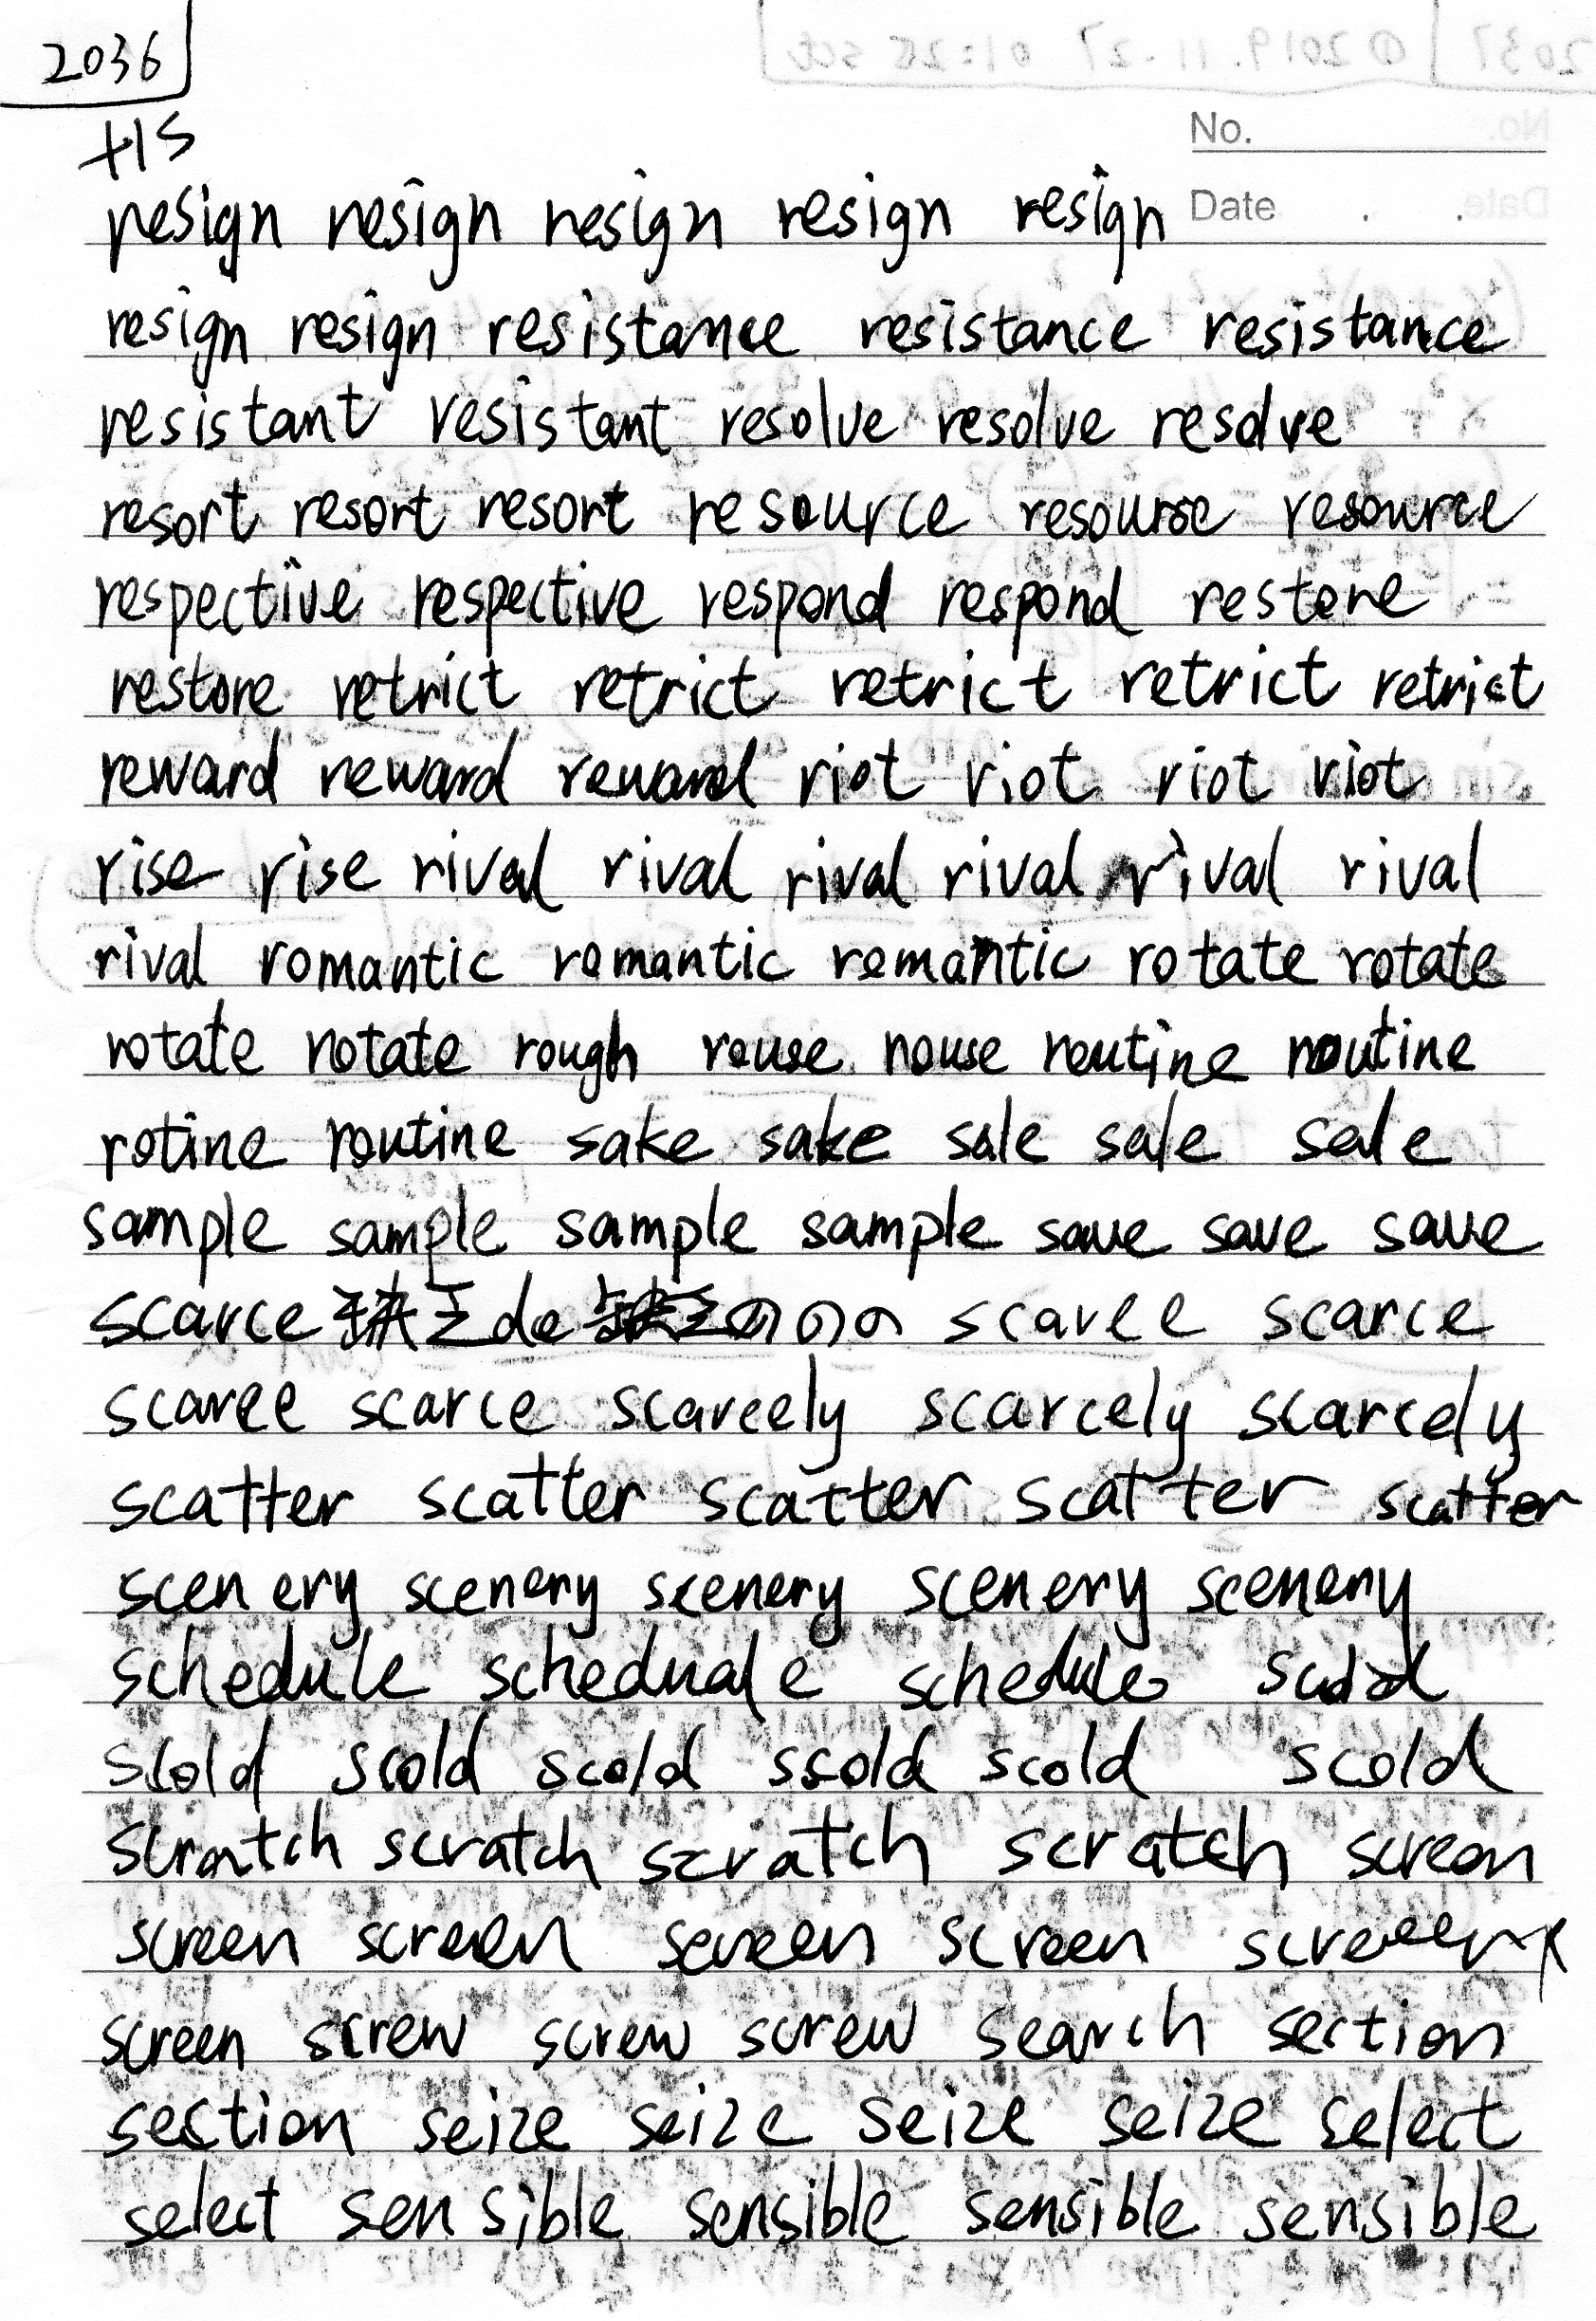 2036
+15
No.
resign resign resign resign resign Date . .
resign resign resistance resistance resistance
resistant resistant resolve resolve resolve
resort resort resort resource resource resource
respective respective respond respond restore
restore retrict retrict retrict retrict retrict
reward reward reward riot riot riot riot
rise rise rival rival rival rival rival rival
rival romantic romantic romantic rotate rotate
rotate rotate rough rouse rouse routine routine
rotine routine sake sake sale sale sale
sample sample sample sample save save save
scarce de ののの scarce scarce
scarce scarce scarcely scarcely scarcely
scatter scatter scatter scatter scatter
scenery scenery scenery scenery scenery
schedule scheduale schedule scold
scold scold scold ssold scold scold
scratch scratch scratch scratch screen
screen screen screen screen screeen
screen screw screw screw search section
section seize seize seize seize select
select sensible sensible sensible sensible